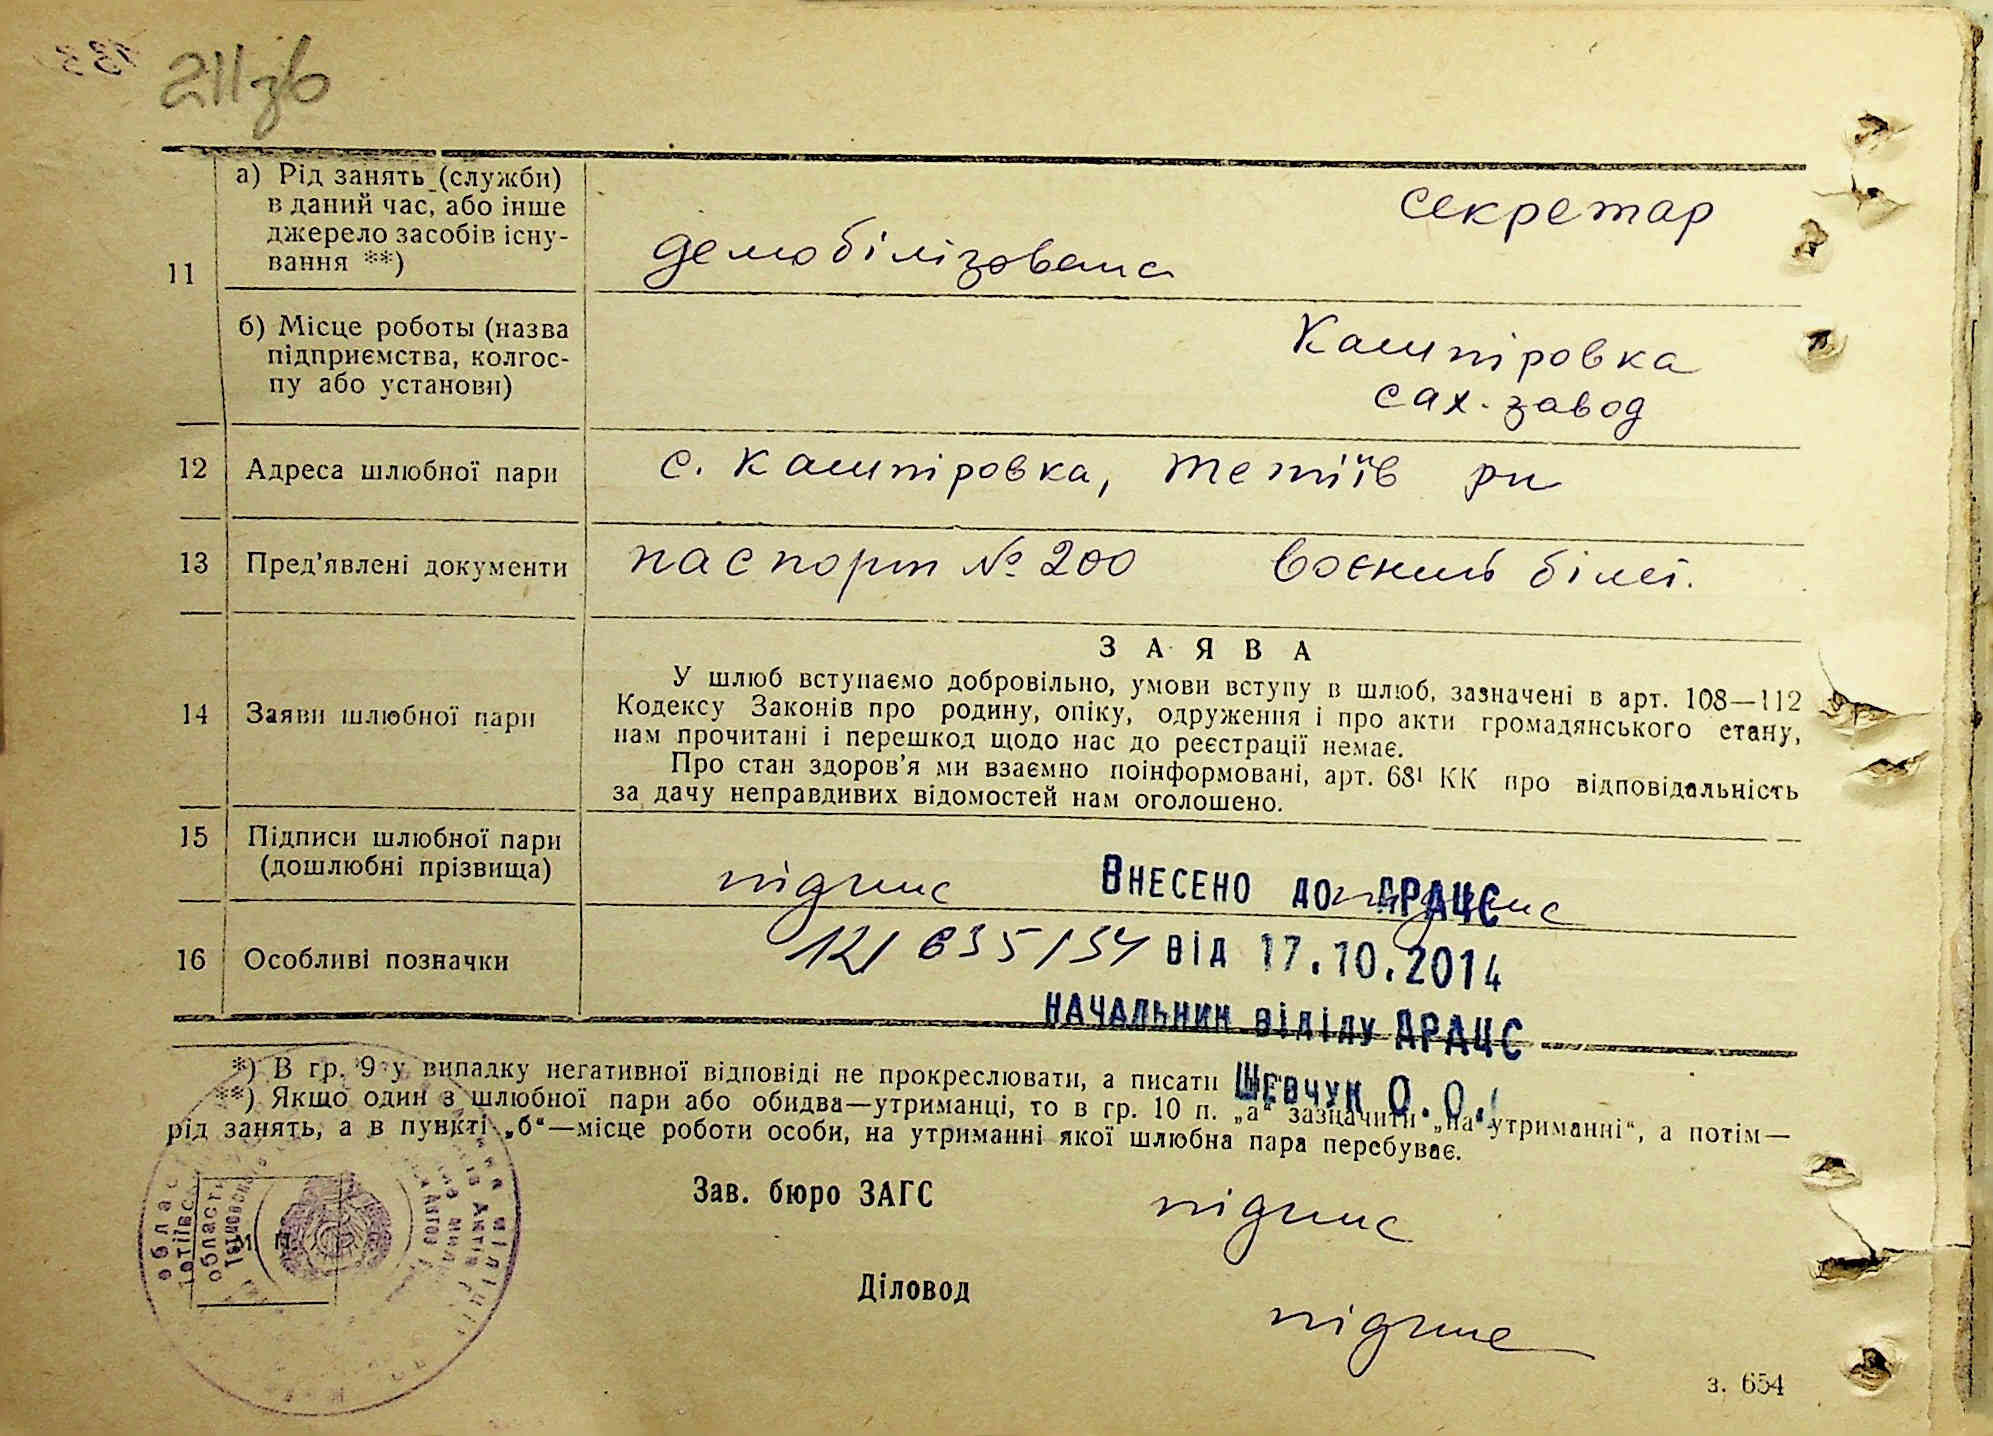 211зв
11
а) Рід занять (служби)
в даний час, або інше
джерело засобів існу-
вання **)
демобілізована
секретар
б) Місце роботы (назва
підприємства, колгос-
пу або установи)
Кашпіровка
сах. завод
12
Адреса шлюбної пари
с. Кашпіровка, Тетіїв рн
13
Пред’явлені документи
паспорт № 200
воєний білет.
14
Заяви шлюбної пари
ЗАЯВА
У шлюб вступаємо добровільно, умови вступу в шлюб, зазначені в арт. 108—112
Кодексу Законів про родину, опіку, одруження і про акти громадянського стану,
нам прочитані і перешкод щодо нас до реєстрації немає.
Про стан здоров’я ми взаємно поінформовані, арт. 68¹ КК про відповідальність
за дачу неправдивих відомостей нам оголошено.
15
Підписи шлюбної пари
(дошлюбні прізвища)
підпис
підпис
Внесено до ДРАЦС
16
Особливі позначки
від 17.10.2014
начальник відділу ДРАЦС
Шевчук О.О.
*) В гр. 9 у випадку негативної відповіді не прокреслювати, а писати
**) Якщо один з шлюбної пари або обидва—утриманці, то в гр. 10 п. „а“ зазначити „на утриманні“, а потім—
рід занять, а в пункті „б“—місце роботи особи, на утриманні якої шлюбна пара перебуває.
Зав. бюро ЗАГС
підпис
Діловод
підпис
з. 654